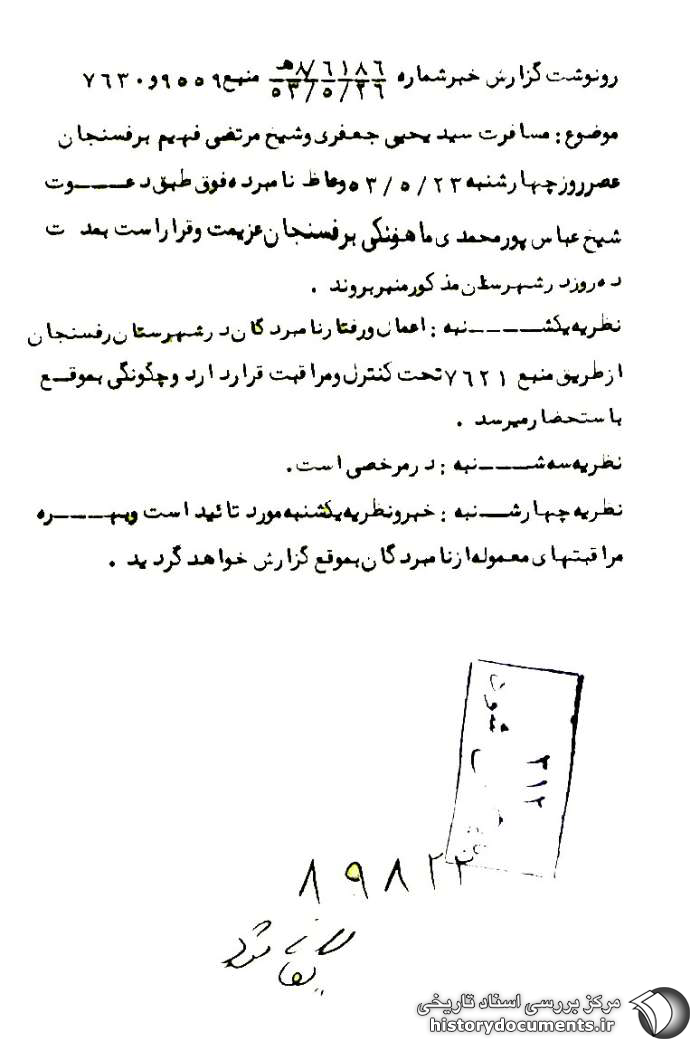 رونوشت گزارش خبر شماره ۸/۶۱۸۶ه‍ ۵۳/۵/۲۶ منبع ۹۵۵۹ و ۷۶۳۰
موضوع : مسافرت سید یحیی جعفری و شیخ مرتضی فهیم برفسنجان
عصر روز چهارشنبه ۵۳/۵/۲۳ وعاظ نامبرده فوق طبق دعـــوت
شیخ عباس پورمحمدی ماهونکی برفسنجان عزیمت و قرار است بمدت
ده روز در شهرستان مذکور منبر بروند .
نظریه یکشـــنبه : اعمال و رفتار نامبردگان در شهرستان رفسنجان
از طریق منبع ۷۶۲۱ تحت کنترل و مراقبت قرار دارد و چگونگی بموقـع
باستحضار میرسد .
نظریه سه شـــنبه : در مرخصی است .
نظریه چهارشـــنبه : خبر و نظریه یکشنبه مورد تائید است و بهـــره
مراقبتهای معموله از نامبردگان بموقع گزارش خواهد گردید .
۳۱۲
۸۹۸۲۲
بایگانی شود
مرکز بررسی اسناد تاریخی
historydocuments.ir